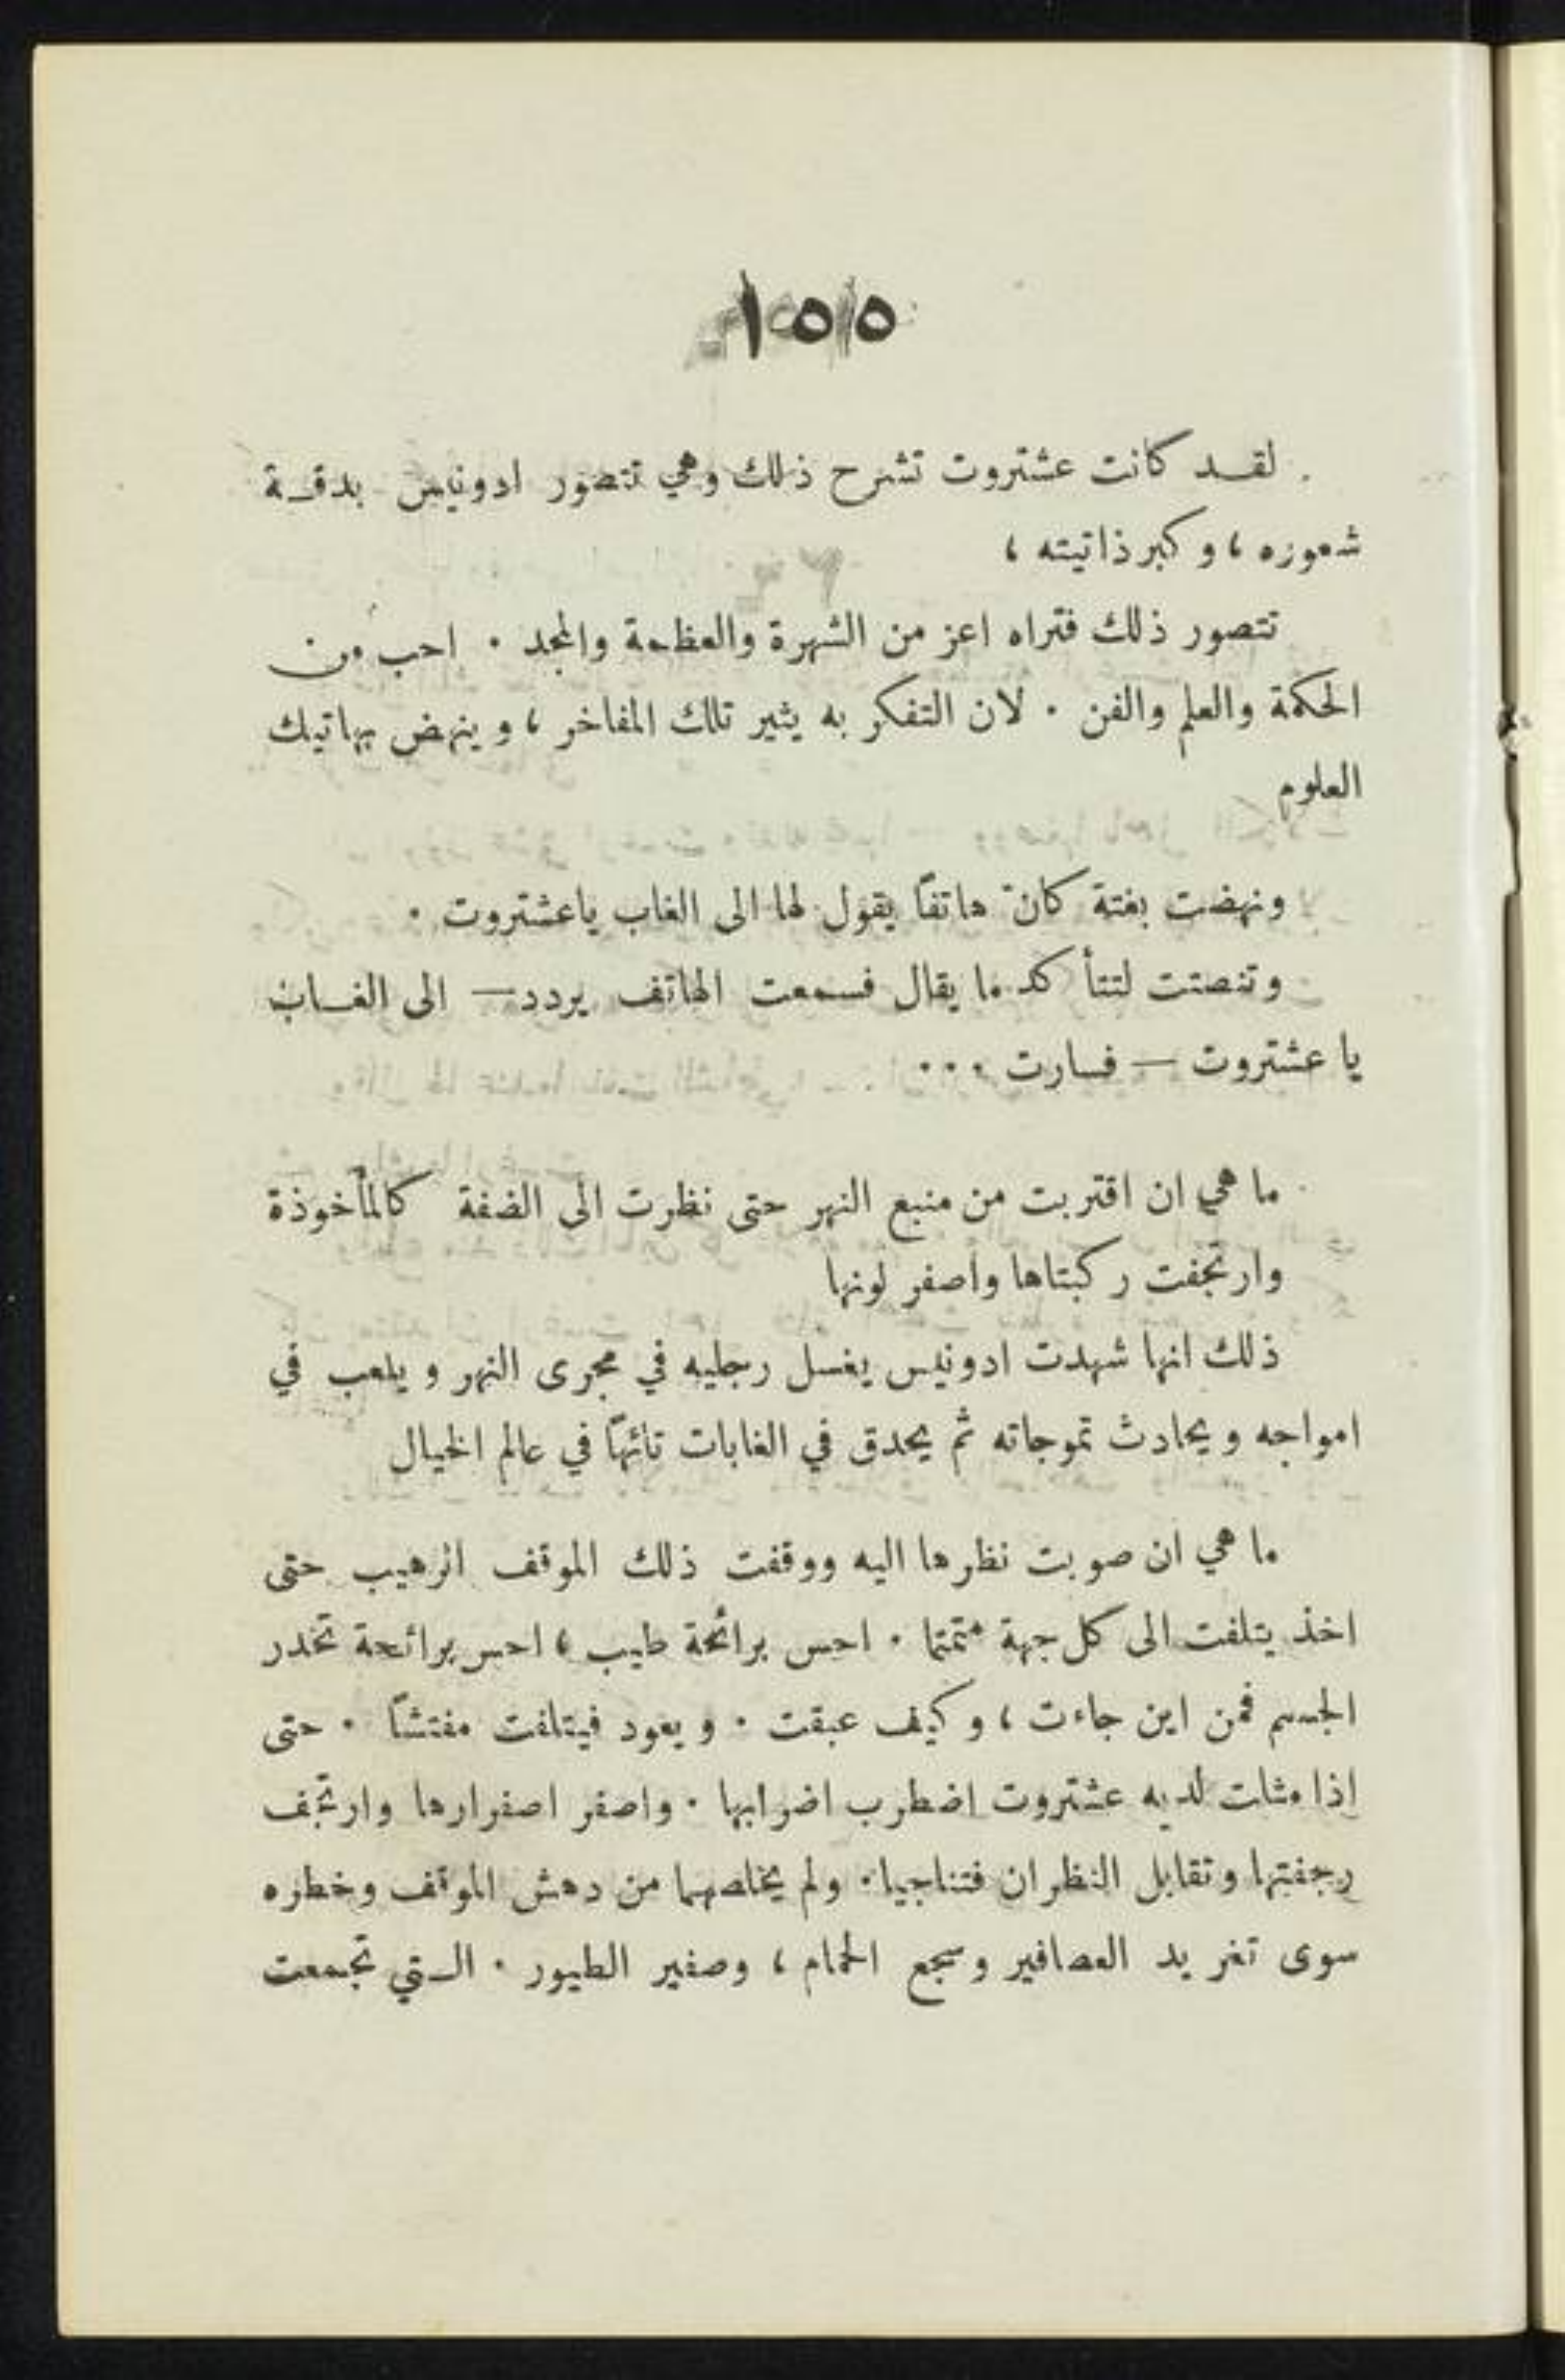 ١٥٥
لقد كانت عشتروت تشرح ذلك وهي تتصور ادونيس بدقة
شعوره ، وكبر ذاتيته ،
تتصور ذلك فتراه اعز من الشهرة والعظمة والمجد . احب من
الحكمة والعلم والفن . لان التفكر به يثير تلك المفاخر ، وينهض بهاتيك
العلوم
ونهضت بغتة كانّ هاتفاً يقول لها الى الغاب ياعشتروت .
وتنصتت لتتأكد ما يقال فسمعت الهاتف يردد — الى الغاب
يا عشتروت — فسارت ...
ما هي ان اقتربت من منبع النهر حتى نظرت الى الضفة كالمأخوذة
وارتجفت ركبتاها واصفر لونها
ذلك انها شهدت ادونيس يغسل رجليه في مجرى النهر ويلعب في
امواجه ويحادث تموجاته ثم يحدق في الغابات تائهاً في عالم الخيال
ما هي ان صوبت نظرها اليه ووقفت ذلك الموقف الرهيب حتى
اخذ يتلفت الى كل جهة متمتما . احس برائحة طيب ، احس برائحة تخدر
الجسم فمن اين جاءت ، وكيف عبقت . ويعود فيتلفت مفتشاً . حتى
إذا مثلت لديه عشتروت اضطرب اضرابها . واصفر اصفرارها وارتجف
رجفتها وتقابل النظران فتناجيا . ولم يخلصهما من دهش الموقف وخطره
سوى تغريد العصافير وسجع الحمام ، وصفير الطيور . التي تجمعت